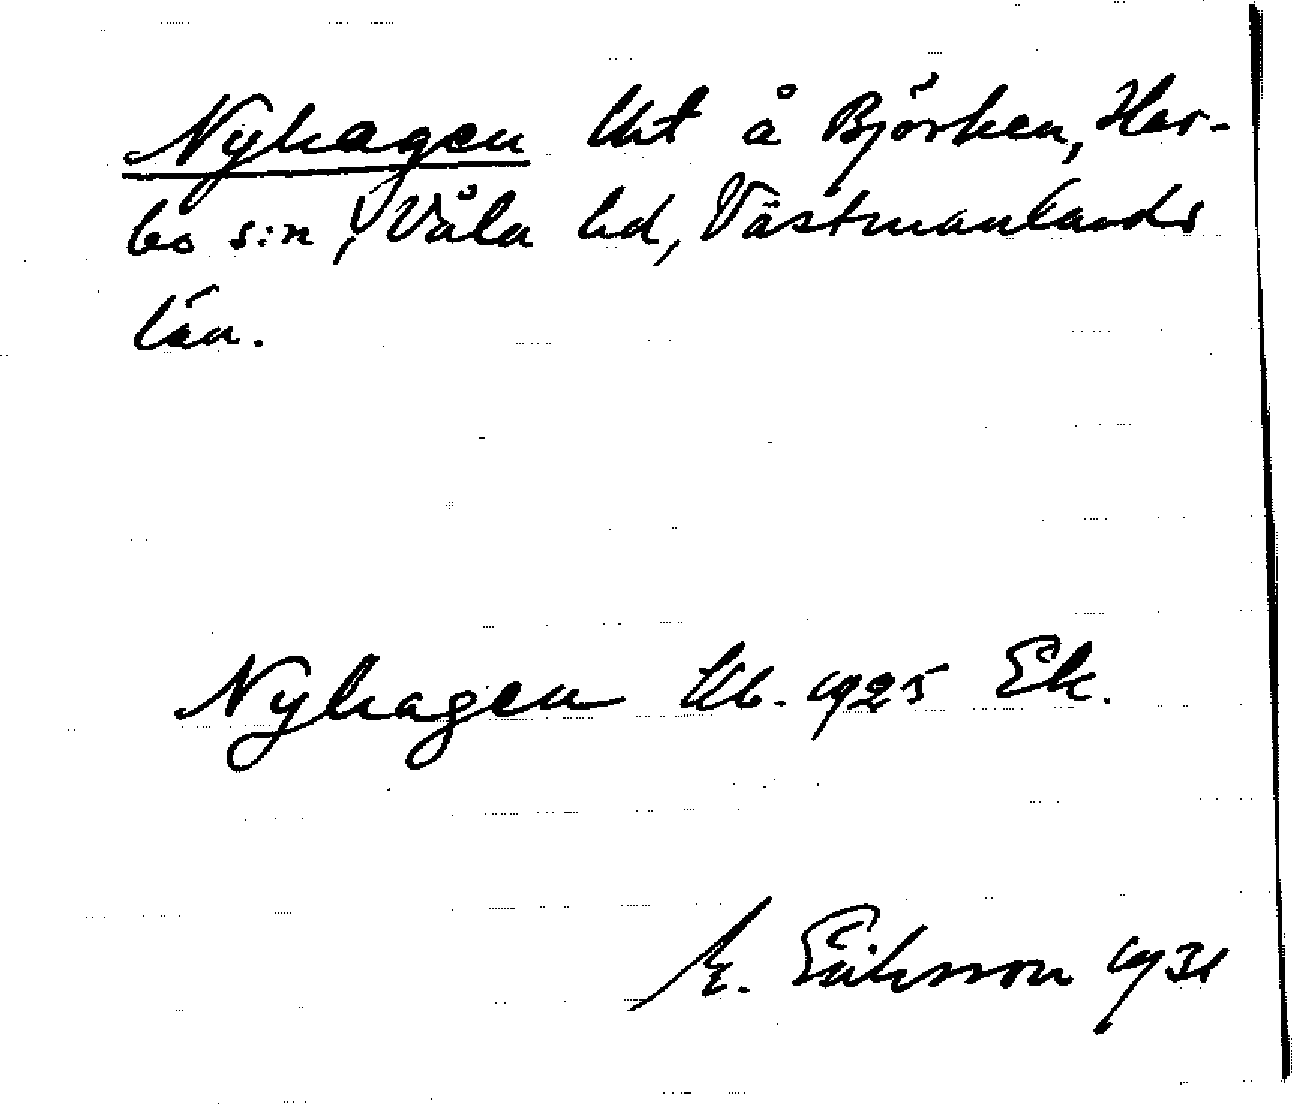 Nyhagen lht å Björken, Har-
bo s:n, Våla hd, Västmanlands
län.
Nyhagen Kb. 1925 Ek.
E. Eriksson 1931